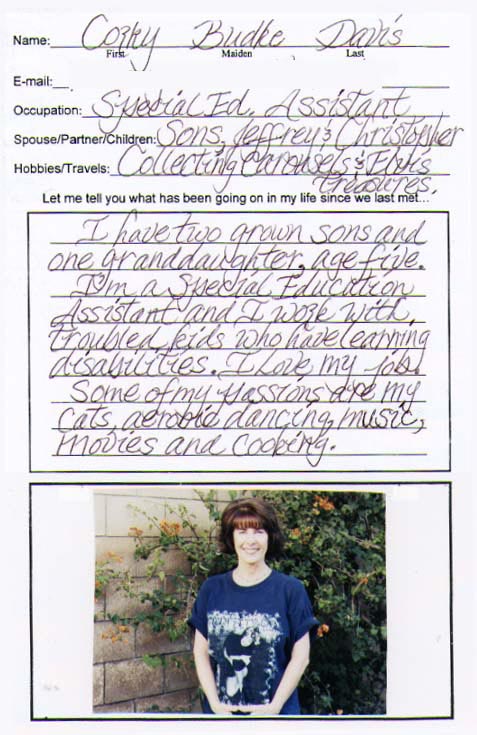 Name: Corky Budke Davis
First Maiden Last
E-mail:
Occupation: Special Ed. Assistant
Spouse/Partner/Children: Sons, Jeffrey & Christopher
Hobbies/Travels: Collecting Carousels & Elvis
treasures.
Let me tell you what has been going on in my life since we last met...
I have two grown sons and
one granddaughter, age five.
I'm a Special Education
Assistant and I work with
troubled kids who have learning
disabilities. I love my job.
Some of my passions are my
cats, aerobic dancing, music,
movies and cooking.